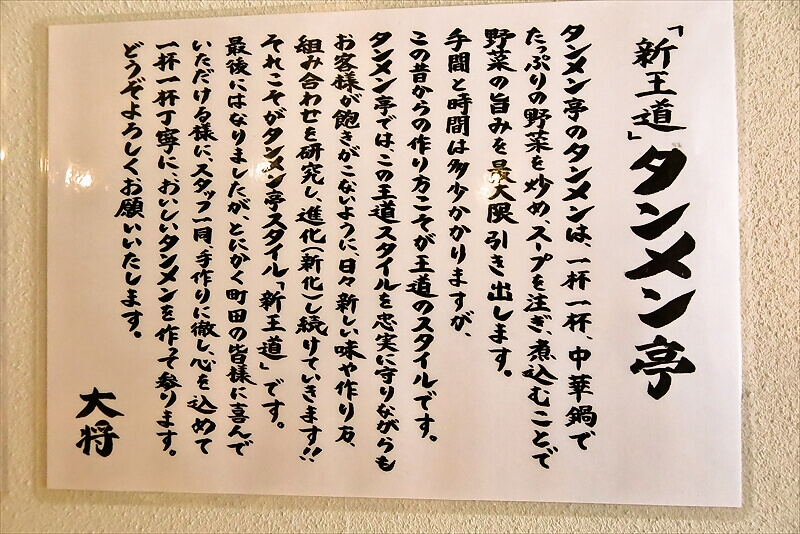 「新王道」タンメン亭
タンメン亭のタンメンは、一杯一杯、中華鍋で
たっぷりの野菜を炒め、スープを注ぎ、煮込むことで
野菜の旨みを最大限引き出します。
手間と時間は多少かかりますが、
この昔からの作り方こそが王道のスタイルです。
タンメン亭では、この王道スタイルを忠実に守りながらも
お客様が飽きがこないように、日々新しい味や作り方、
組み合わせを研究し、進化(新化)し続けていきます!!
それこそがタンメン亭スタイル「新王道」です。
最後にはなりましたが、とにかく町田の皆様に喜んで
いただける様に、スタッフ一同、手作りに徹し、心を込めて
一杯一杯丁寧に、おいしいタンメンを作って参ります。
どうぞよろしくお願いいたします。
大将